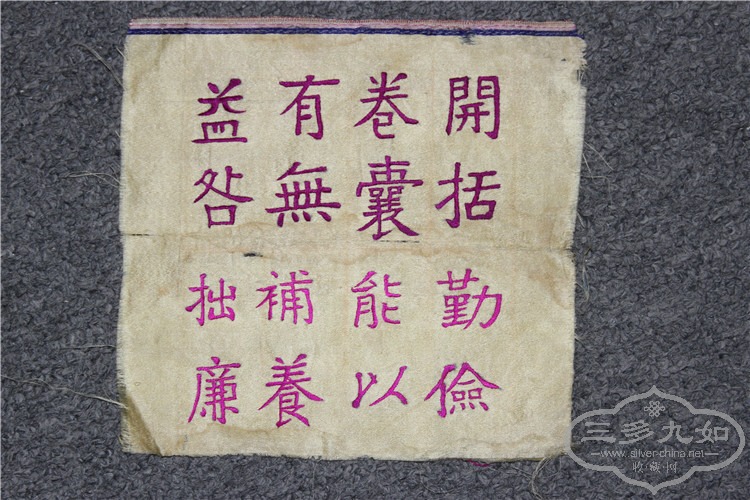 開卷有益
括囊無咎
勤能補拙
儉以養廉
三多九如
www.silver-china.net